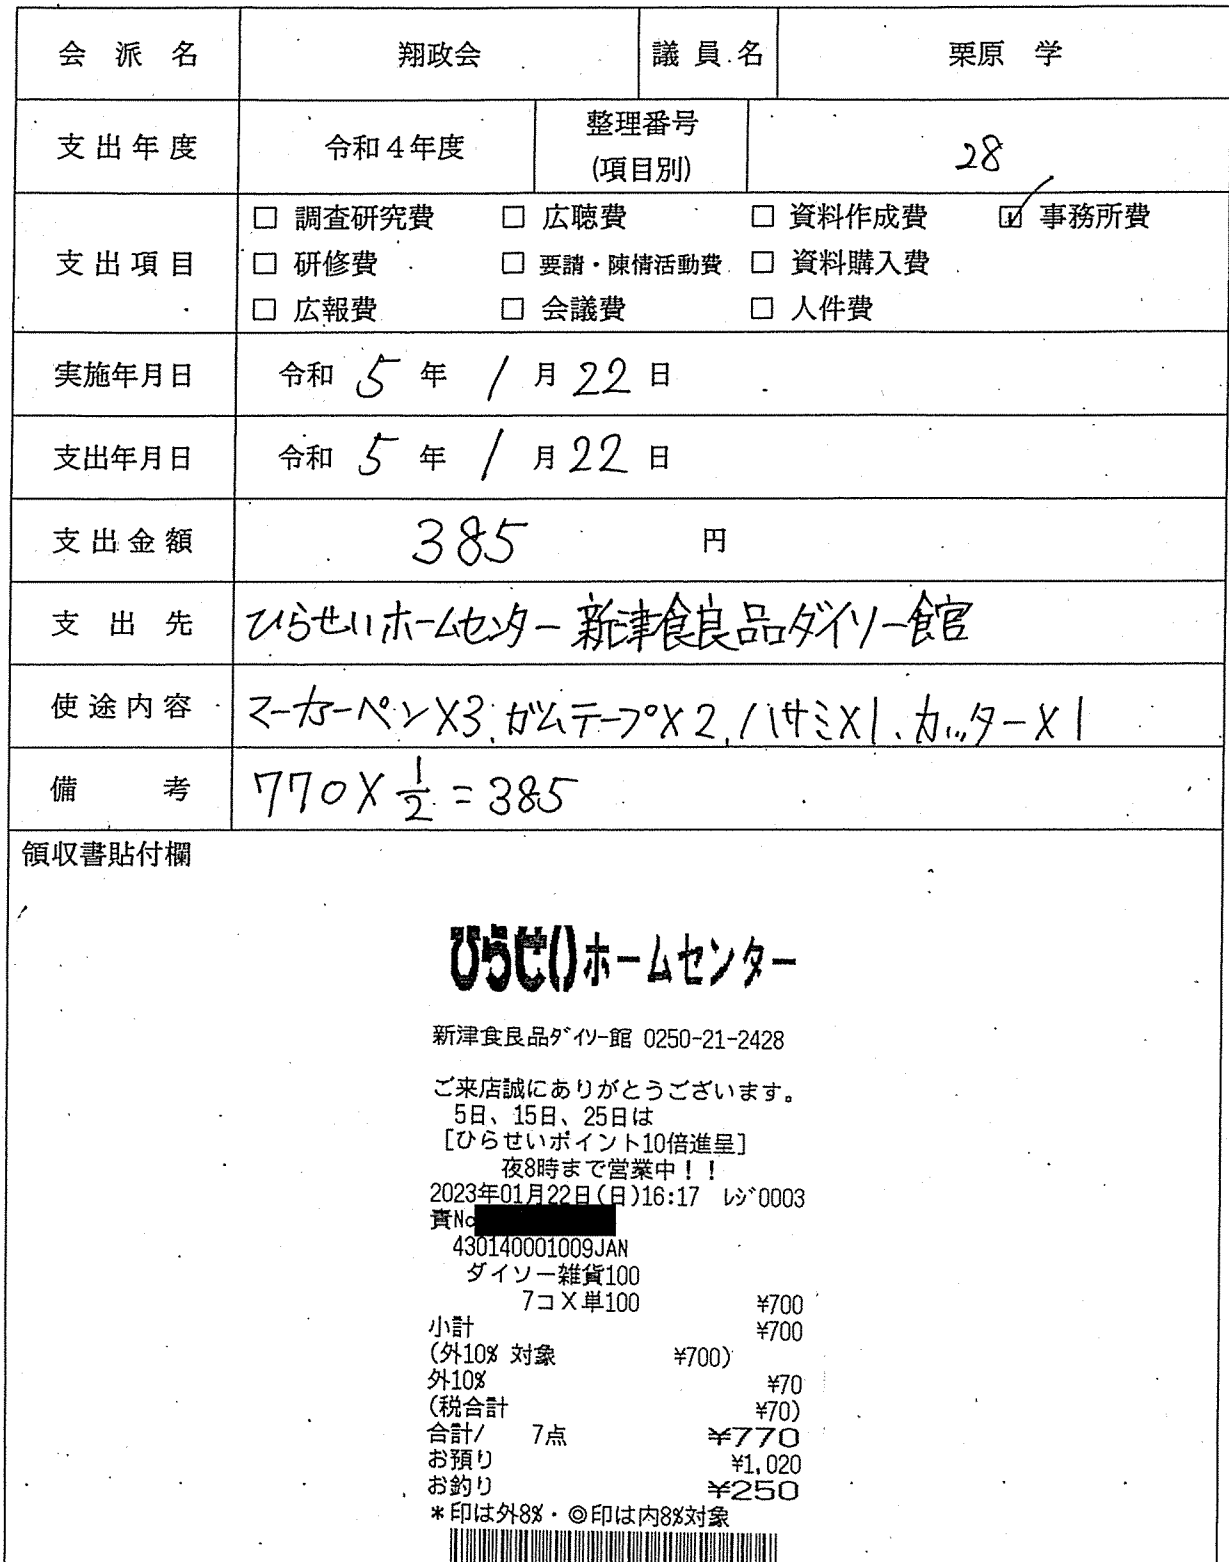 会派名 翔政会 議員名 栗原 学
支出年度 令和4年度 整理番号(項目別) 28
支出項目
□ 調査研究費 □ 広聴費 □ 資料作成費 ☑ 事務所費
□ 研修費 □ 要請・陳情活動費 □ 資料購入費
□ 広報費 □ 会議費 □ 人件費
実施年月日 令和 5 年 1 月 22 日
支出年月日 令和 5 年 1 月 22 日
支出金額 385 円
支出先 ひらせいホームセンター新津食良品ダイソー館
使途内容 マーカーペン×3、ガムテープ×2、ハサミ×1、カッター×1
備考 770×1/2=385
領収書貼付欄
ひらせいホームセンター
新津食良品ﾀﾞｲｿｰ館 0250-21-2428
ご来店誠にありがとうございます。
5日、15日、25日は
[ひらせいポイント10倍進呈]
夜8時まで営業中！！
2023年01月22日(日)16:17 ﾚｼﾞ0003
責No
430140001009JAN
ダイソー雑貨100
7コX単100 ¥700
小計 ¥700
(外10% 対象 ¥700)
外10% ¥70
(税合計 ¥70)
合計/ 7点 ¥770
お預り ¥1,020
お釣り ¥250
*印は外8%・◎印は内8%対象